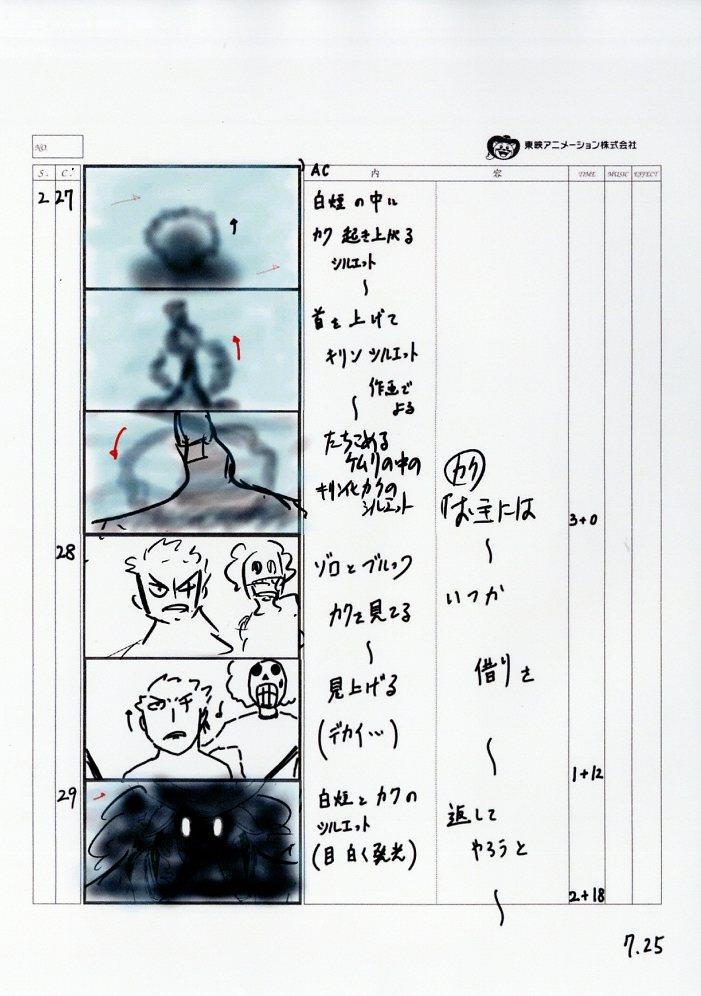 NO.
東映アニメーション株式会社
S. C. 内 容 TIME MUSIC EFFECT
AC
2 27
白煙の中に
カク 起き上がる
シルエット
〜
首を上げて
キリン シルエット
作画で
よる
〜
たちこめる
ケムリの中の
キリン化カクの
シルエット
カク
「お主には
3+0
〜
28
ゾロとブルック
カクを見てる
〜
見上げる
(デカイ…)
いつか
借りを
〜
1+12
29
白煙とカクの
シルエット
(目 白く発光)
返して
やろうと
〜
2+18
7.25